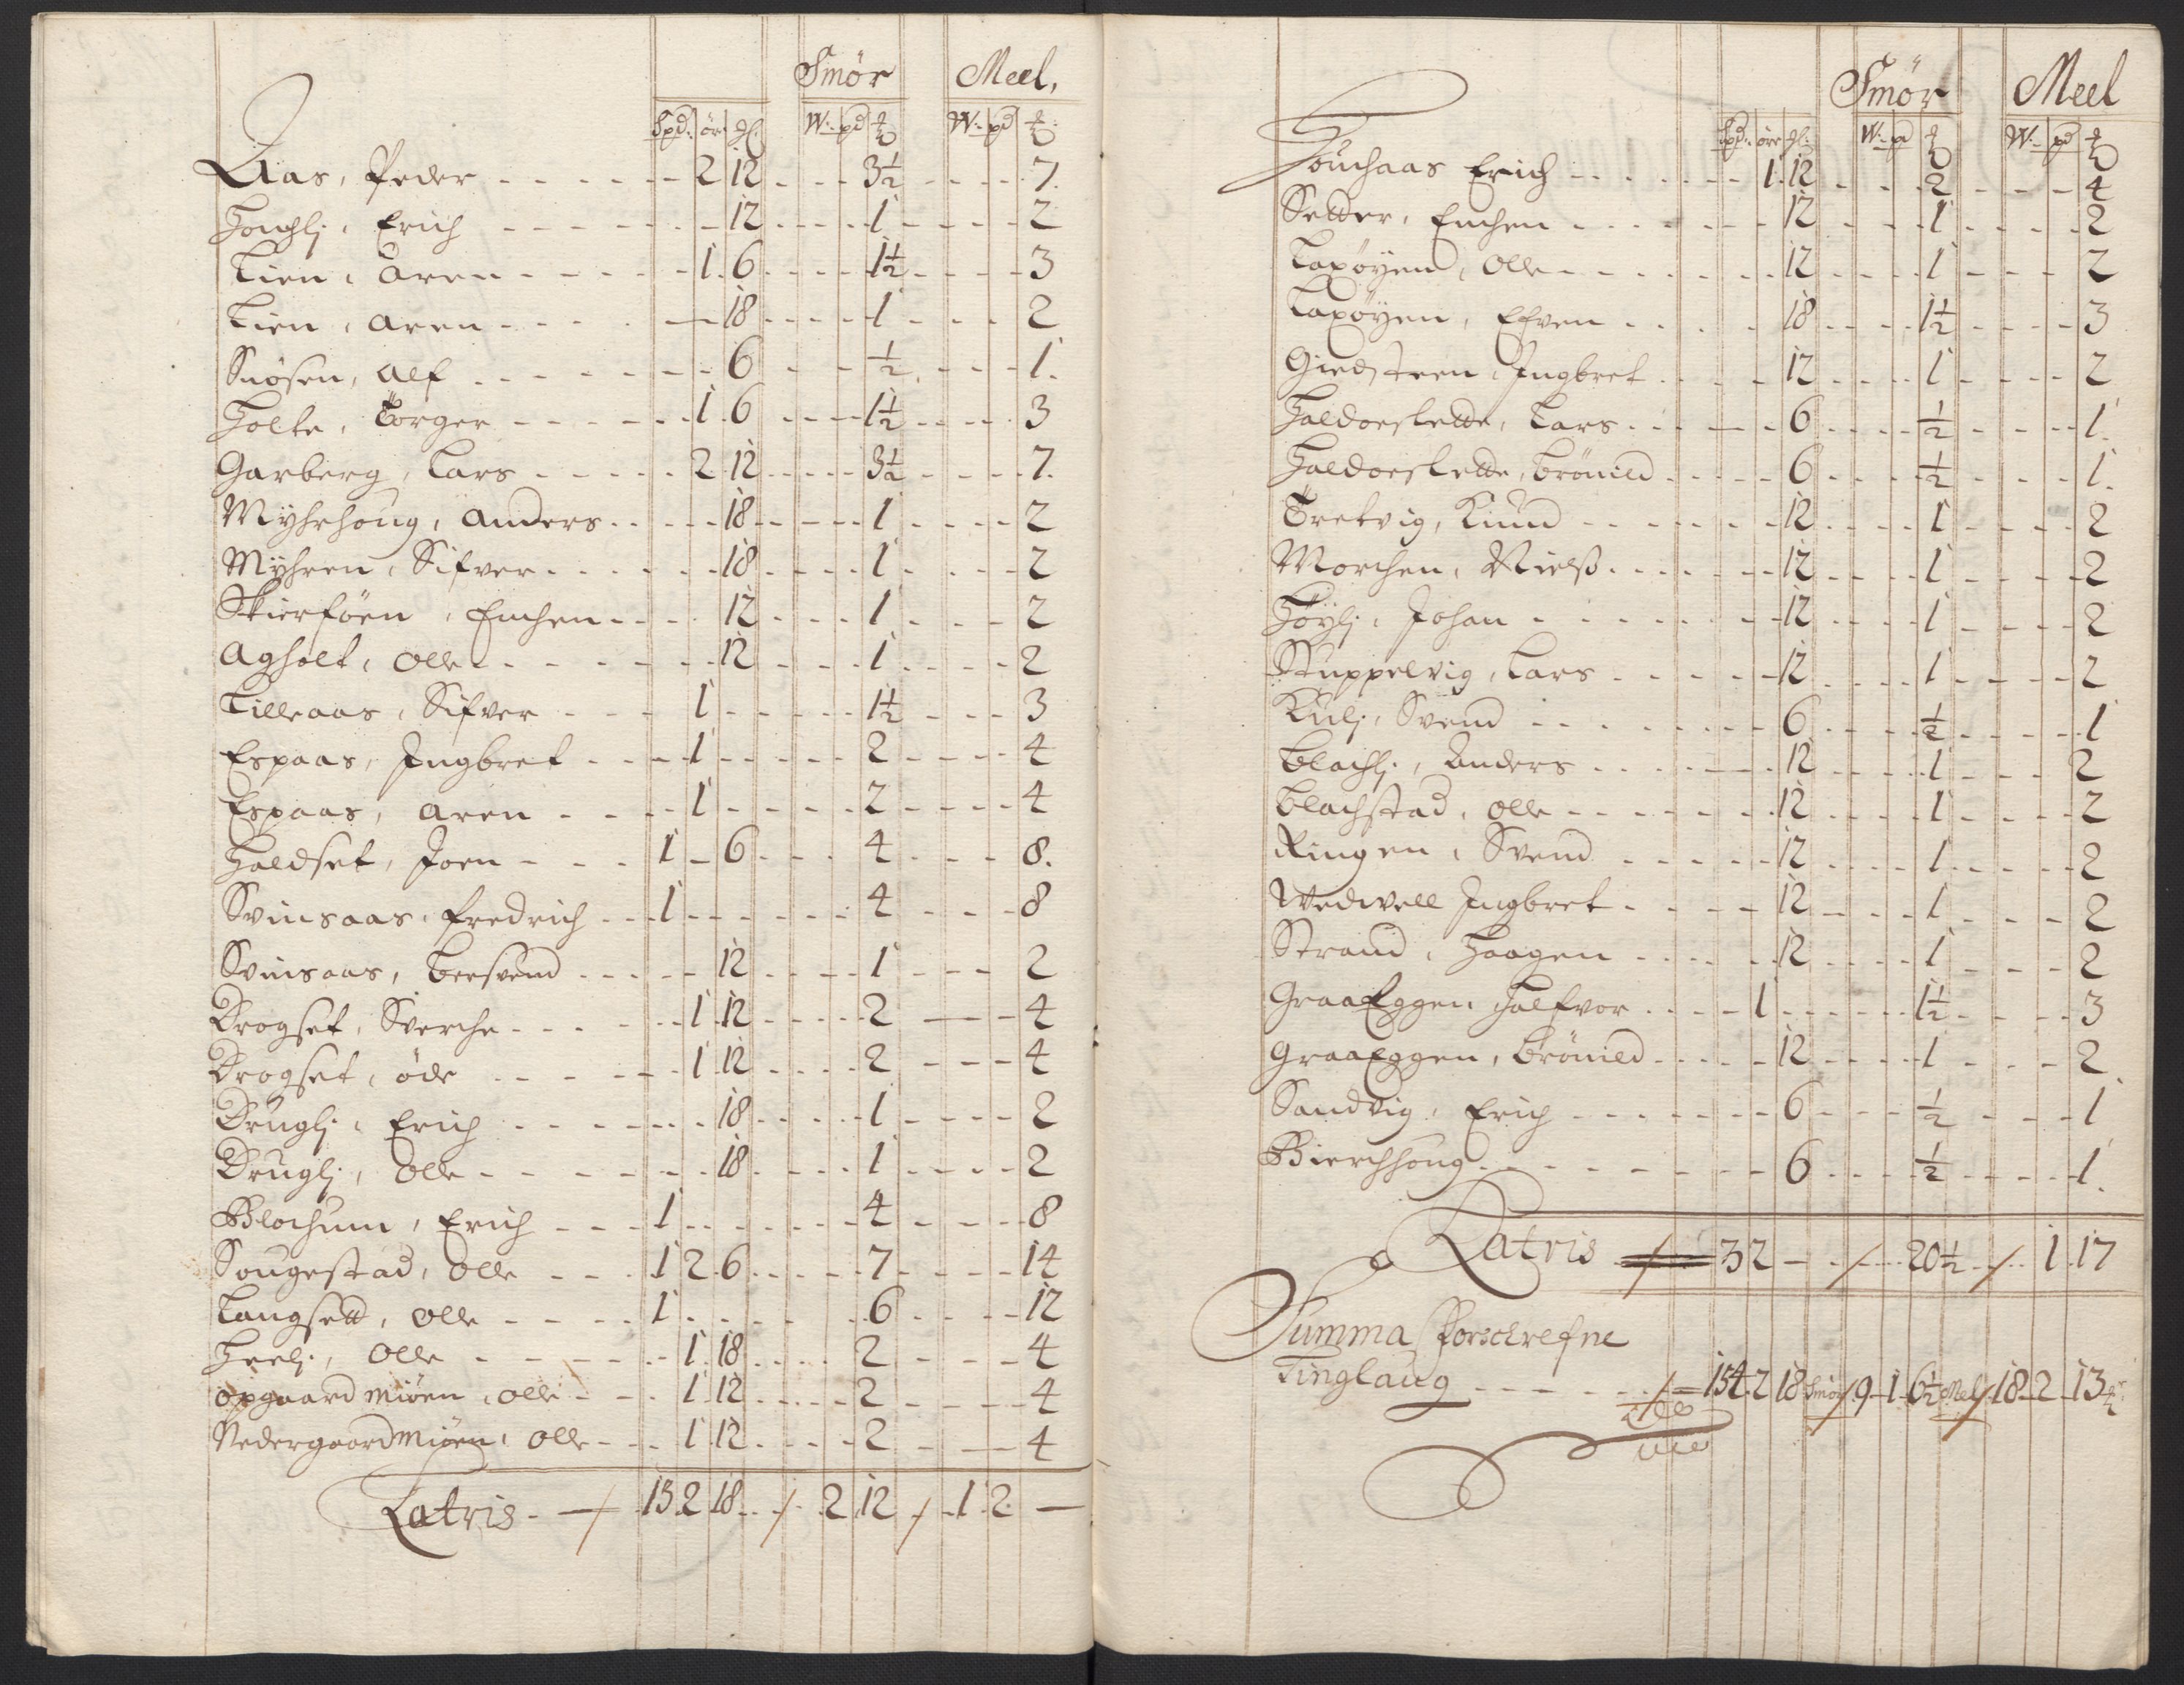 Smør Meel,
Spd: ør: gl. W: pd ℔ W: pd ℔
Aas, Peder - - - - - - 2 12 - - - 3½ - - - - 7.
Houchlj, Erich - - - - - - - 12 - - - - 1 - - - - 2
Lien, Aren - - - - - 1 6 - - - - 1½ - - - - 3
Lien, Aren - - - - - 18 - - - - 1 - - - 2
Snøsen, Alf - - - - - - - 6 - - ½ - - - 1.
Holte, Torger - - - - - - 1 6 - - - 1½ - - - - 3
Garberg, Lars - - - - - 2 12 - - - - 3½ - - - - 7.
Myhrhoug, Anders - - - - 18 - - - - - 1 - - - - 2
Myhren, Sifver - - - - - - 18 - - - - 1 - - - - 2
Skierføen, Enchen - - - - 12 - - - - 1 - - - - 2
Agholt, Olle - - - - - - - 12 - - - - 1 - - - - 2
Lilleaas, Sifver - - - 1 - - - - - 1½ - - - 3
Espaas, Ingbret - - - 1 - - - - - 2 - - - - 4
Espaas, Aren - - - - 1 - - - - - 2 - - - - 4
Haldset, Joen - - - - 1 - 6 - - - 4 - - - - 8.
Svinsaas, Fredrich - - - 1 - - - - - - 4 - - - - 8
Svinsaas, Bersvend - - - - - 12 - - - - 1 - - - 2
Drogset, Sverche - - - - - - 1 12 - - - - 2 - - - 4
Drogset, øde - - - - - 1 12 - - - - 2 - - - 4
Druglj, Erich - - - - - - 18 - - - - 1 - - - - 2
Druglj, Olle - - - - - - - 18 - - - - 1 - - - - 2
Blochum, Erich - - - 1 - - - - - - 4 - - - - 8
Sougestad, Olle - - - 1 2 6 - - - - - 7 - - - - - 14
Langsett, Olle - - - - 1 - - - - - 6 - - - - 12
Heelj, Olle - - - - - - 1 18 - - - - 2 - - - - 4
opgaard Miøen, Olle - - - 1 12 - - - - 2 - - - - 4
Nedergaard Miøen, Olle - - - 1 12 - - - - 2 - - - 4
Latris - - / 13 2 18 - - / - 2 12 / - 1 2 -
Smør Meel
Spd: øre gl: W: pd ℔ W: pd ℔
Houchaas Erich - - - - - - - 1 12 - - - 2 - - - - 4
Setter, Enchen - - - - - - - 12 - - - 1 - - - - 2
Laxøyen, Olle - - - - - - - 12 - - - - 1 - - - 2
Laxøyen, Efven - - - - - 18 - - - - 1½ - - - - 3
Giedsteen, Ingbret - - - - 12 - - - - 1 - - - - 2
Haldorslette, Lars - - - - - 6 - - - - ½ - - - - 1.
Haldorslette, Brønild - - - - - 6 - - - - ½ - - - - 1.
Tretvig, Knud - - - - - - - 12 - - - - 1 - - - - 2
Morchen, Nielß - - - - - - 12 - - - - 1 - - - - 2
Høylj, Johan - - - - - - - 12 - - - - 1 - - - - 2
Stuppelvig, Lars - - - - - - 12 - - - - 1 - - - - 2
Kulj, Svend - - - - - - - - 6 - - - - ½ - - - - 1
Blachlj, Anders - - - - - - 12 - - - - 1 - - - 2
Blachstad, Olle - - - - - - - 12 - - - - 1 - - - - 2
Ringen, Svend - - - - - 12 - - - - 1 - - - - 2
Wedwell Ingbret - - - - - 12 - - - - 1 - - - - 2
Strand, Haagen - - - - - - 12 - - - - 1 - - - - 2
GraaEggen Halfvor - - - - - 1 - - - - - - 1½ - - - - 3
GraaEggen, Brønild - - - - - 12 - - - - 1 - - - 2
Sandvig, Erich - - - - - - - 6 - - - ½ - - - - 1
Bierchhoug - - - - - - - - 6 - - - - ½ - - - - - 1.
Latris / 3 2 - - / - - - 20½ - / - - 1 17
Summa Forschrefne
Tinglaug - - - - - - / - 154 2 18 Smør / 9 - 1 - 6½ Mel / 18 - 2 - 13 ℔